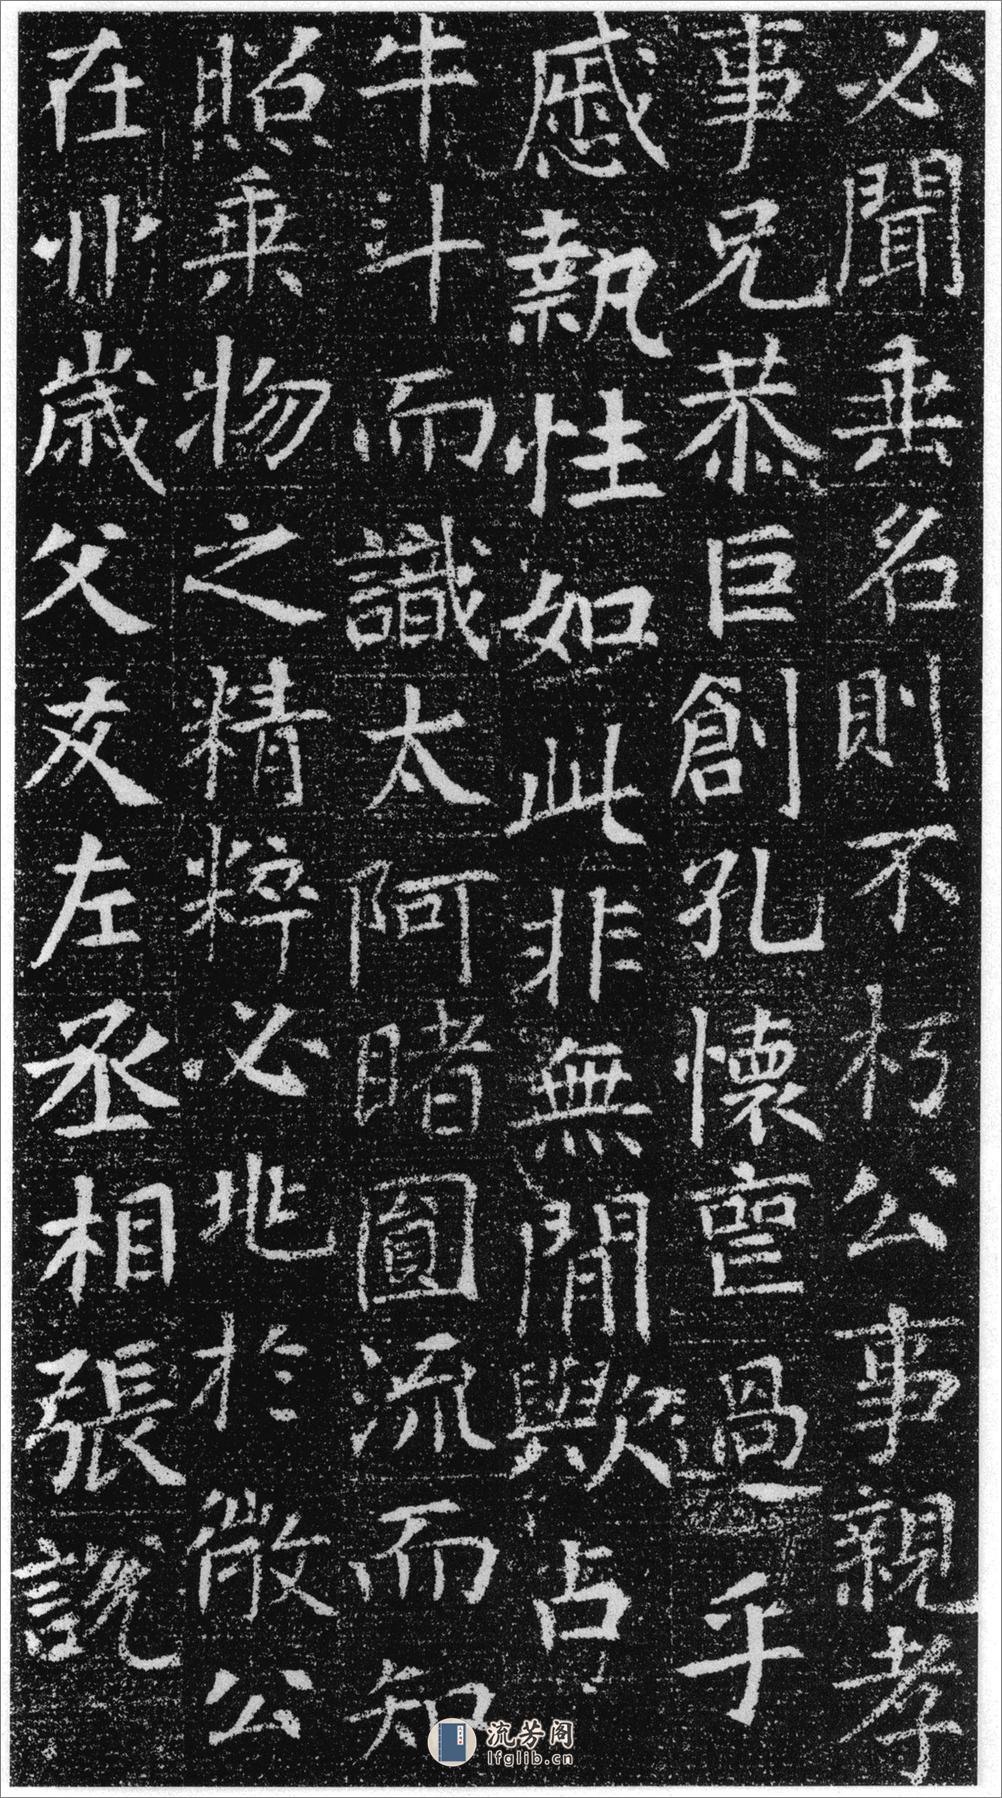 必聞垂名則不朽公事親孝
事兄恭巨創孔懷亶過乎
慼執性如此非無聞歟占
牛斗而識太阿睹圓流而知
照乗物之精粹必兆於微公
在丱歲父友左丞相張說
流芳阁
lfglib.cn